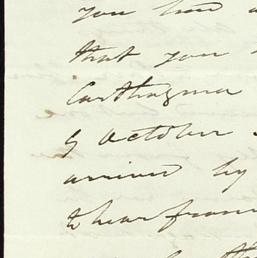 you have
that you
Carthagena
9 October
arrived by
to hear from